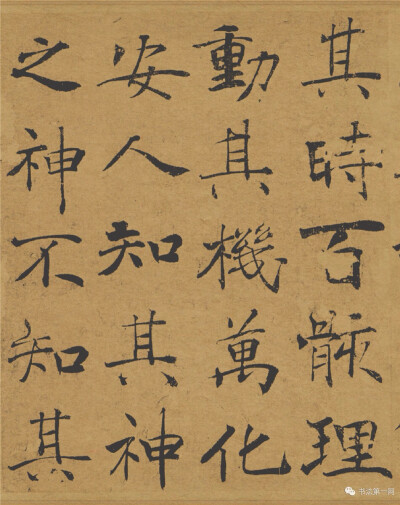 其時百骸理
動其機萬化
安人知其神
之神不知其
书法第一网